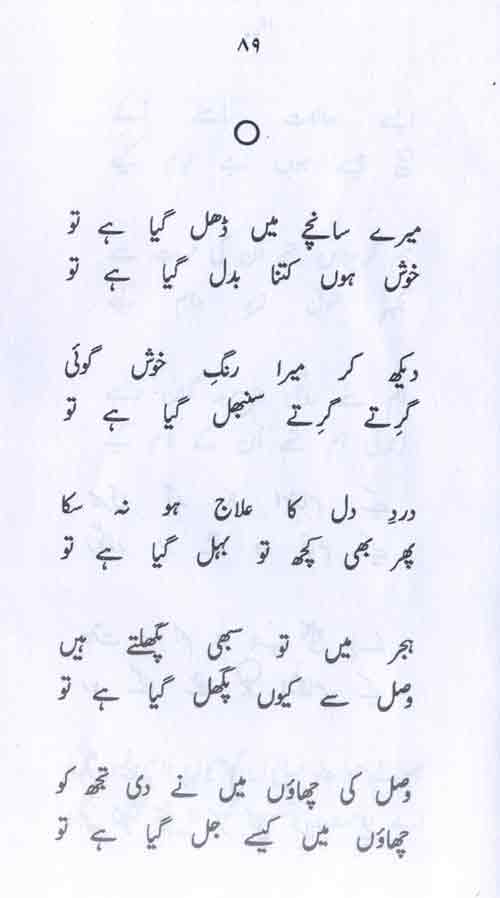 ۸۹
میرے سانچے میں ڈھل گیا ہے تو
خوش ہوں کتنا بدل گیا ہے تو
دیکھ کر میرا رنگِ خوش گوئی
گرتے گرتے سنبھل گیا ہے تو
دردِ دل کا علاج ہو نہ سکا
پھر بھی کچھ تو بہل گیا ہے تو
ہجر میں تو سبھی پگھلتے ہیں
وصل سے کیوں پگھل گیا ہے تو
وصل کی چھاؤں میں نے دی تجھ کو
چھاؤں میں کیسے جل گیا ہے تو